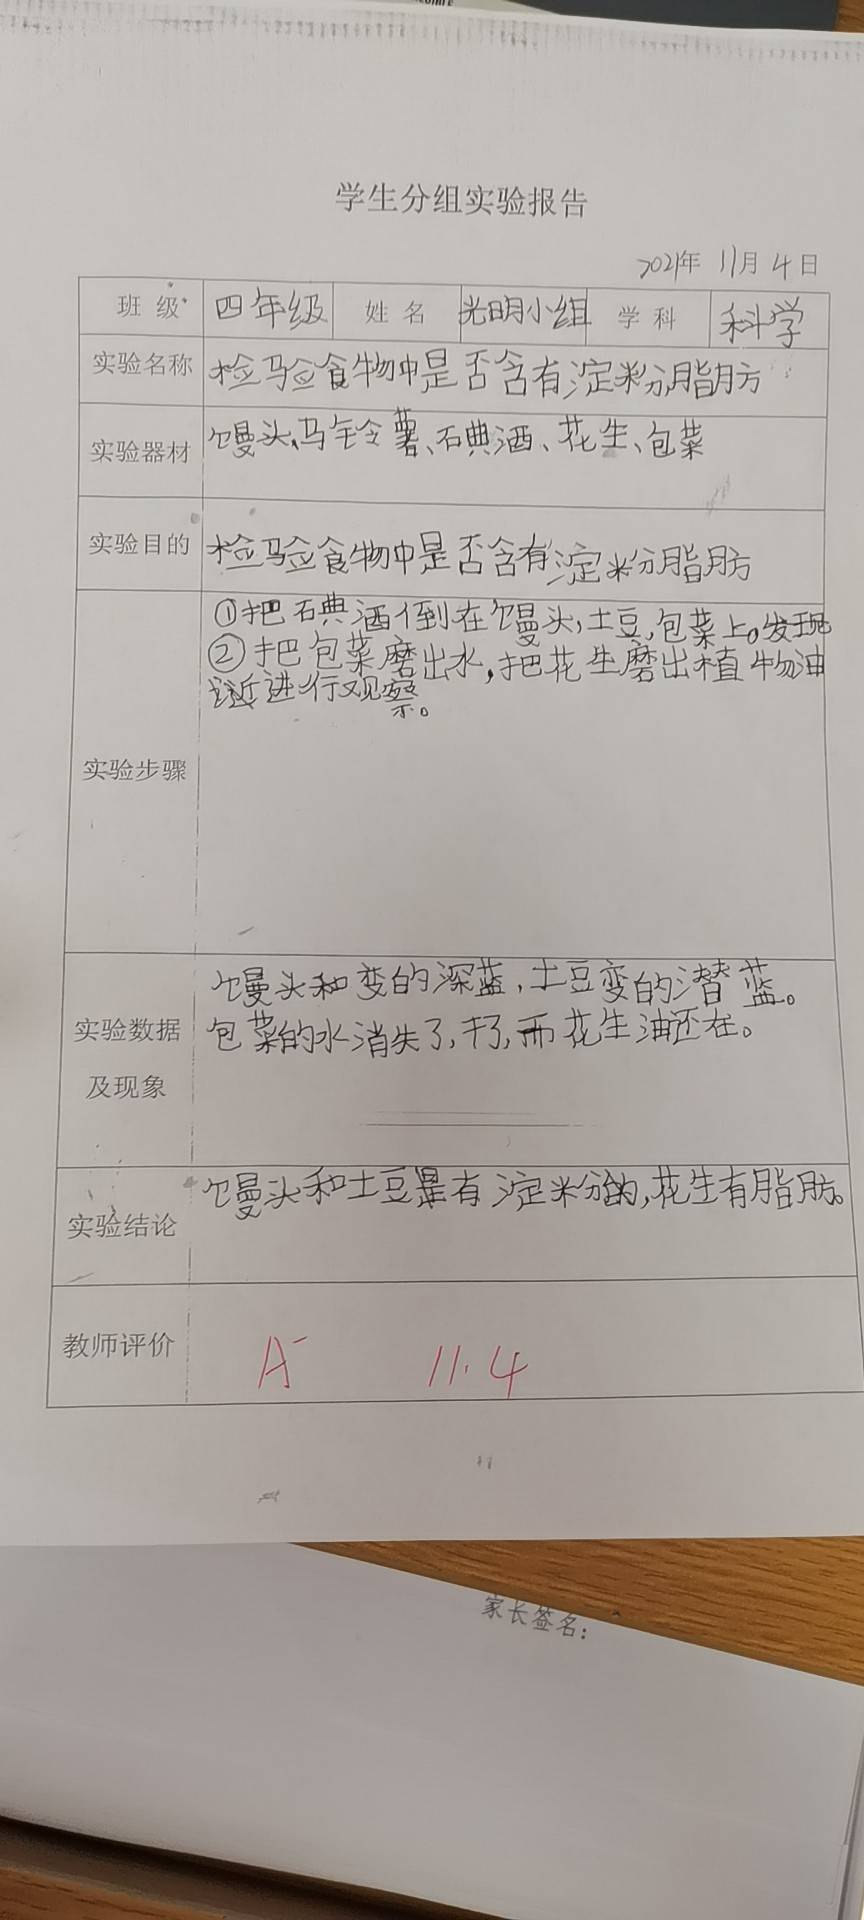 学生分组实验报告
2021年 11月 4日
班 级 四年级 姓 名 光明小组 学 科 科学
实验名称 检验食物中是否含有淀粉,脂肪方
实验器材 馒头,马铃薯、石典酒、花生、包菜
实验目的 检验食物中是否含有淀粉脂肪
实验步骤
①把石典酒倒在馒头,土豆,包菜上。发现
②把包菜磨出水,把花生磨出植物油
进行观察。
实验数据
及现象
馒头和变的深蓝,土豆变的潜蓝。
包菜的水消失了,干了,而花生油还在。
实验结论 馒头和土豆是有淀粉的,花生有脂肪。
教师评价 A- 11.4
家长签名: